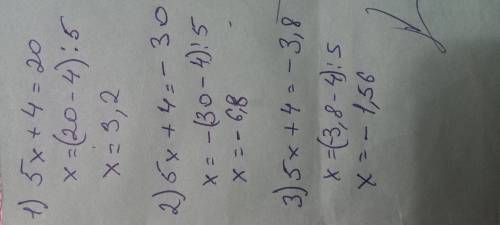 1) 5x + 4 = 20
x = (20 - 4) : 5
x = 3,2
2) 5x + 4 = - 30
x = -(30 - 4) : 5
x = - 6,8
3) 5x + 4 = - 3,8
x = (3,8 - 4) : 5
x = - 1,56